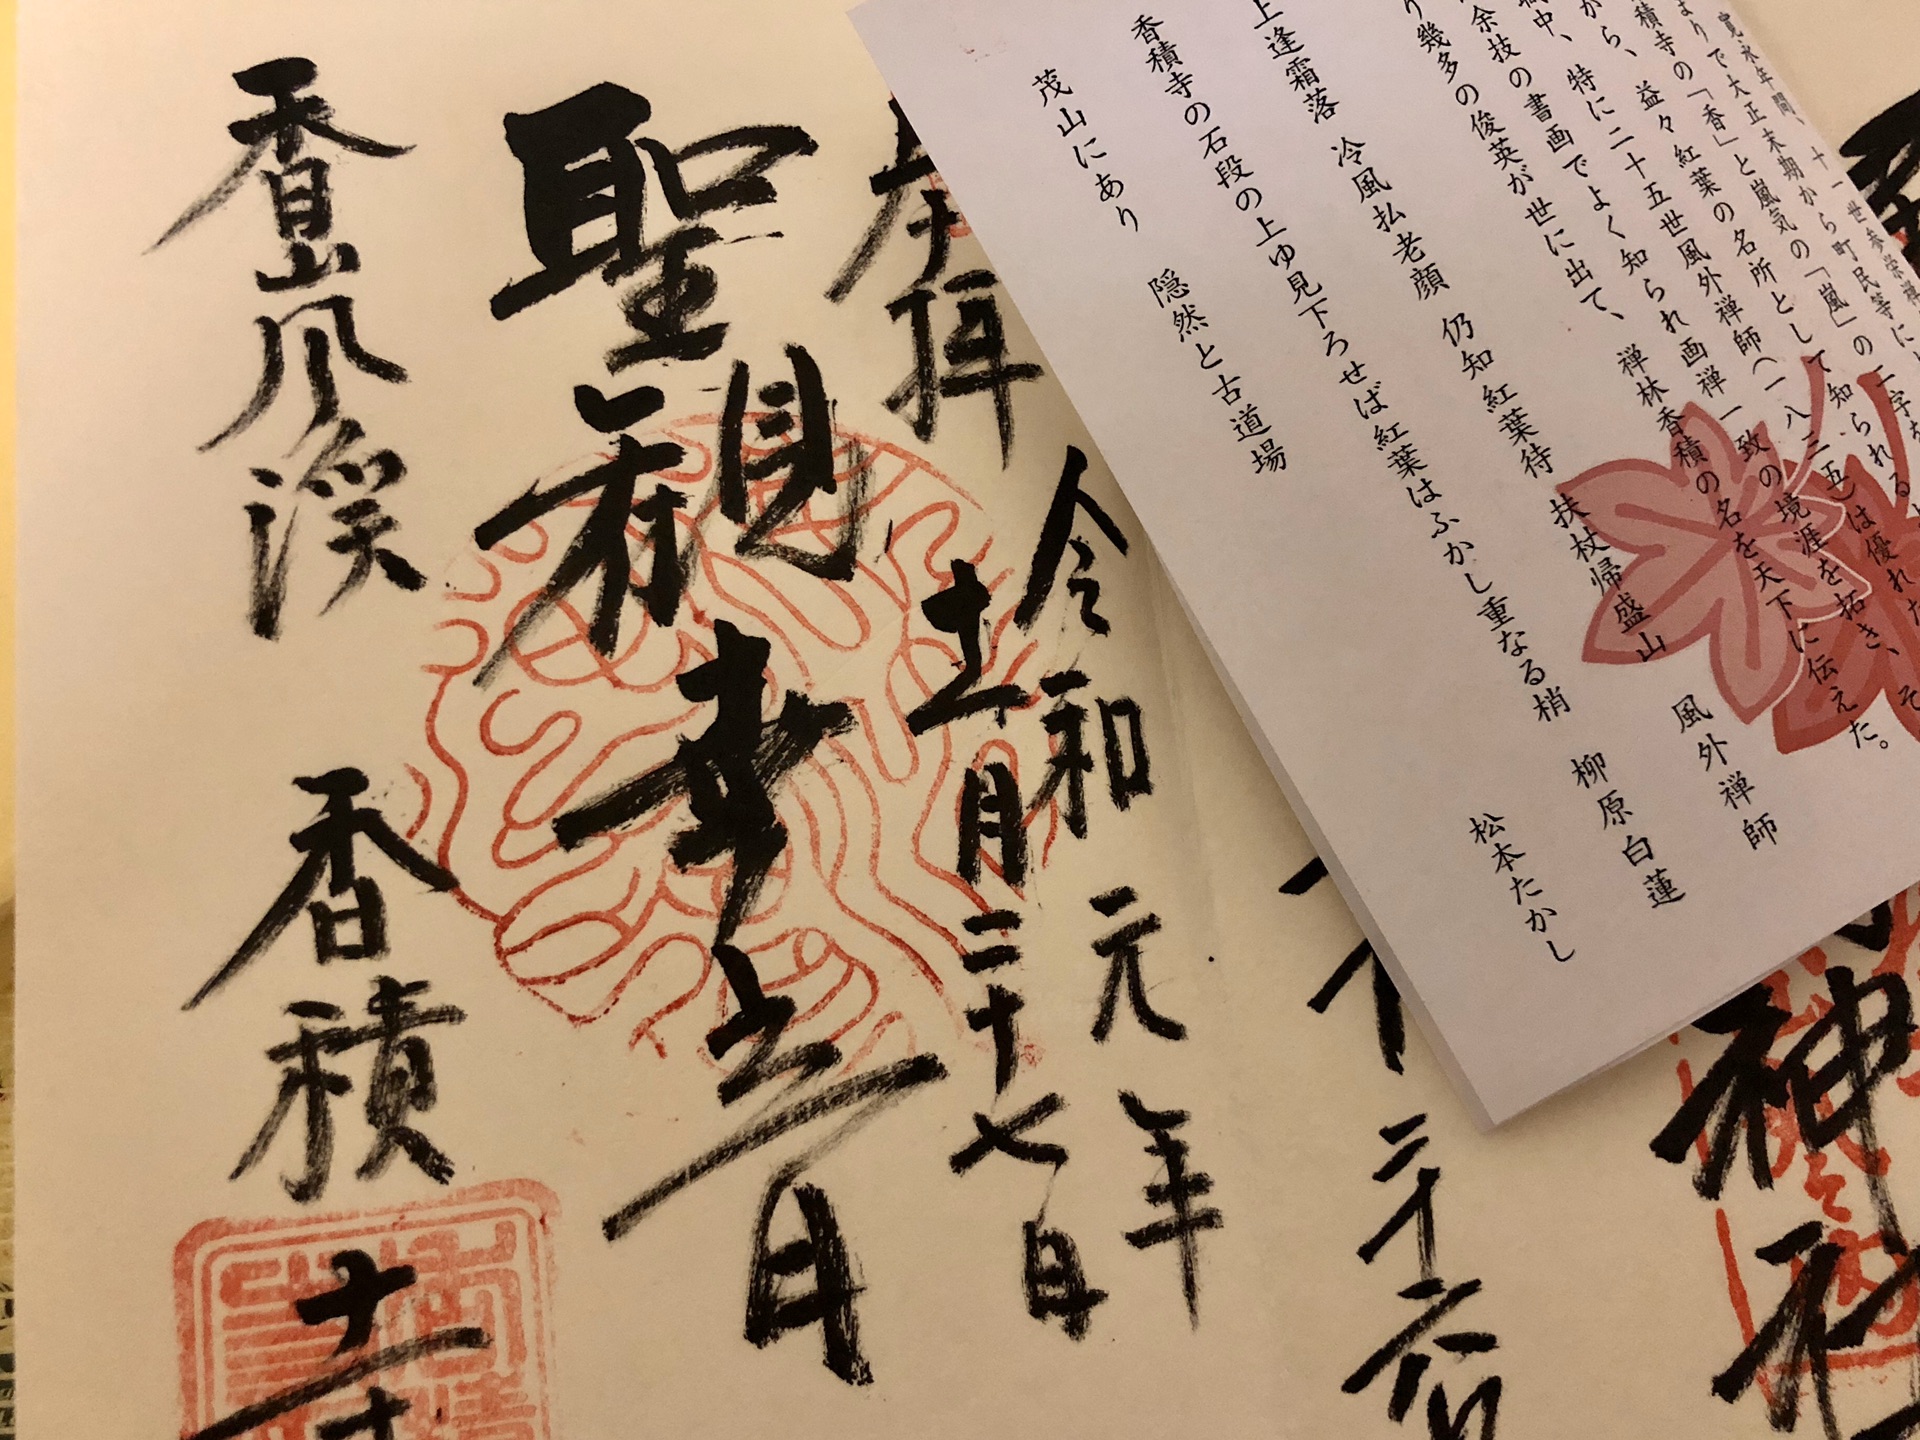 寛永年間、十一世参栄禅
まりで大正末期から町民等に
積寺の「香」と嵐気の「嵐」の二字を
から、益々紅葉の名所として知られる
中、特に二十五世風外禅師
余技の書画でよく知られ画禅一致の境涯を拓き、そ
り幾多の俊英が世に出て、禅林香積の名を天下に伝えた。
上逢霜落 冷風払老顔 仍知紅葉待 扶杖帰盛山 風外禅師
香積寺の石段の上ゆ見下ろせば紅葉はふかし重なる梢 柳原白蓮
茂山にあり 隠然と古道場 松本たかし
神社
二十六
令和元年
十一月二十七日
奉拝
聖観世音
香嵐渓 香積寺